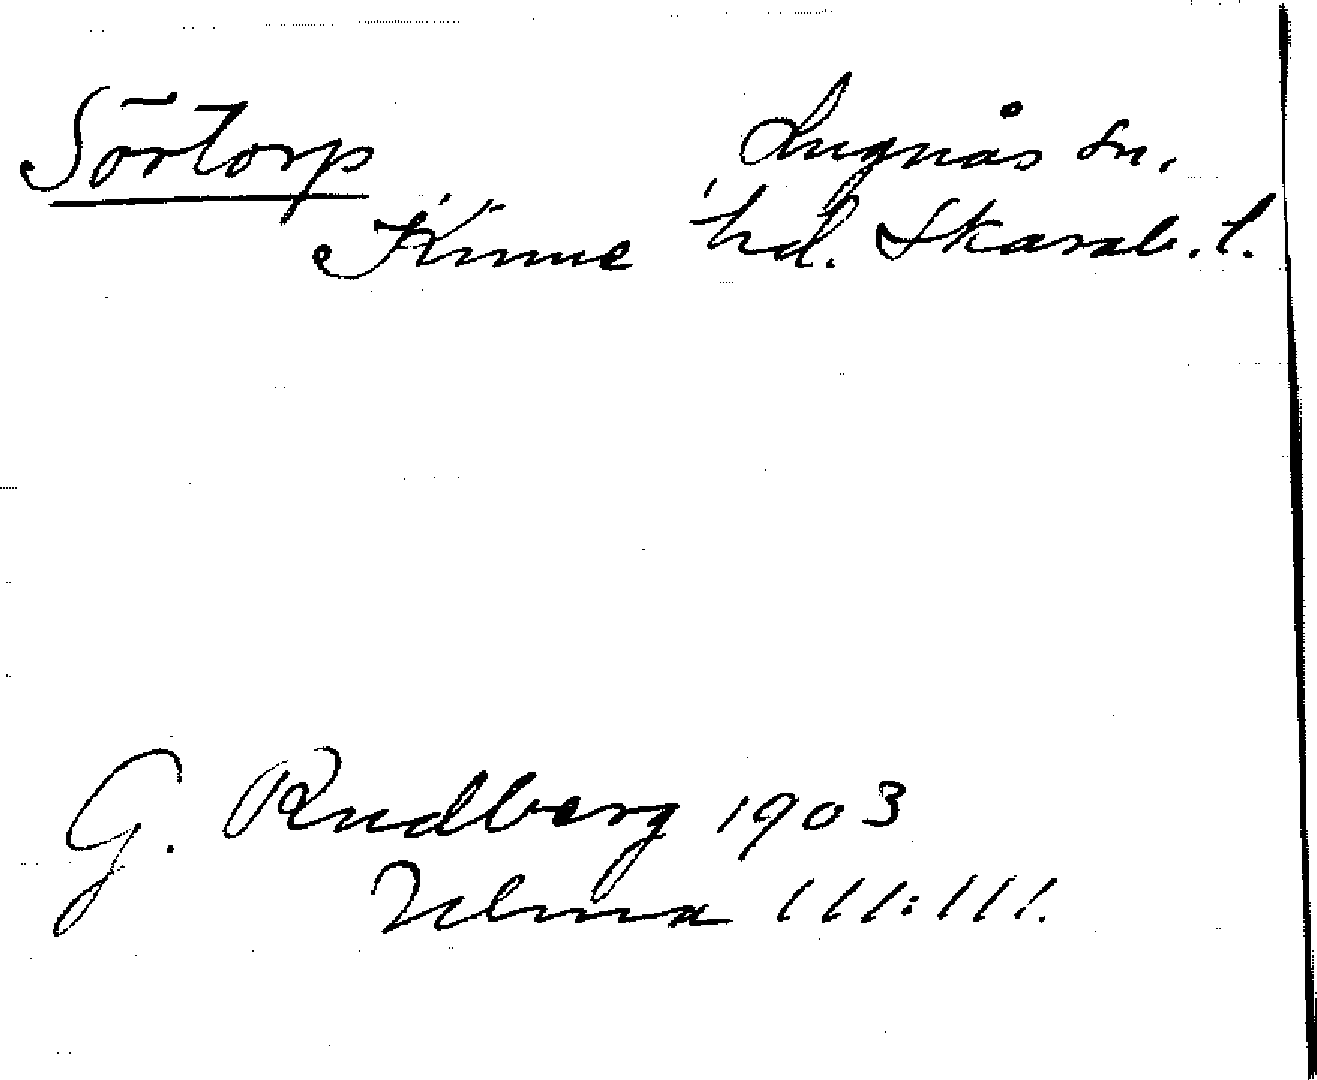 Sörtorp Lugnås sn.
Kinne hd. Skarab. l.
G. Rudberg 1903
Ulma 111:111.